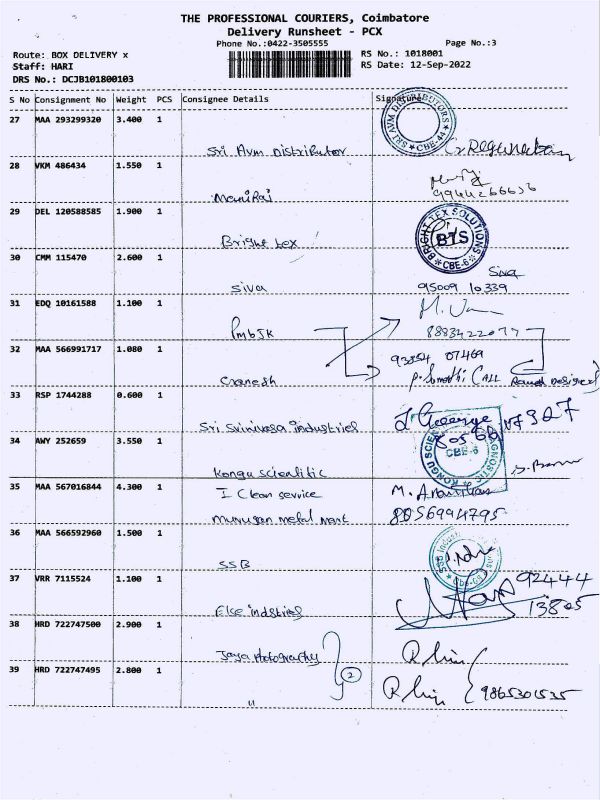 THE PROFESSIONAL COURIERS, Coimbatore
Delivery Runsheet - PCX
Phone No.:0422-3505555
Page No.:3
Route: BOX DELIVERY x
RS No.: 1018001
Staff: HARI
RS Date: 12-Sep-2022
DRS No.: DCJB101800103
S No Consignment No Weight PCS Consignee Details Signature
27 MAA 293299320 3.400 1
Sri Avm Distributor
SRI AVM DISTRIBUTORS
CBE-44
28 VKM 486434 1.550 1
Maniraj
9944266636
29 DEL 120588585 1.900 1
Bright tex
BRIGHT TEX SOLUTIONS
BTS
CBE-6
30 CMM 115470 2.600 1
Siva
Siva
95009 10339
31 EDQ 10161588 1.100 1
PmbJK
8883422077
32 MAA 566991717 1.080 1
Ganesh
93854 07469
33 RSP 1744288 0.600 1
Sri Srinivasa industries
34 AWY 252659 3.550 1
Kongu Scientific
CBE-6
35 MAA 567016844 4.300 1
I Clean service
Murugan metal mart
8056994795
36 MAA 566592960 1.500 1
SSB
37 VRR 7115524 1.100 1
Elce indstries
92444
13805
38 HRD 722747500 2.900 1
Jaya Photography
2
39 HRD 722747495 2.800 1
"
9865301535